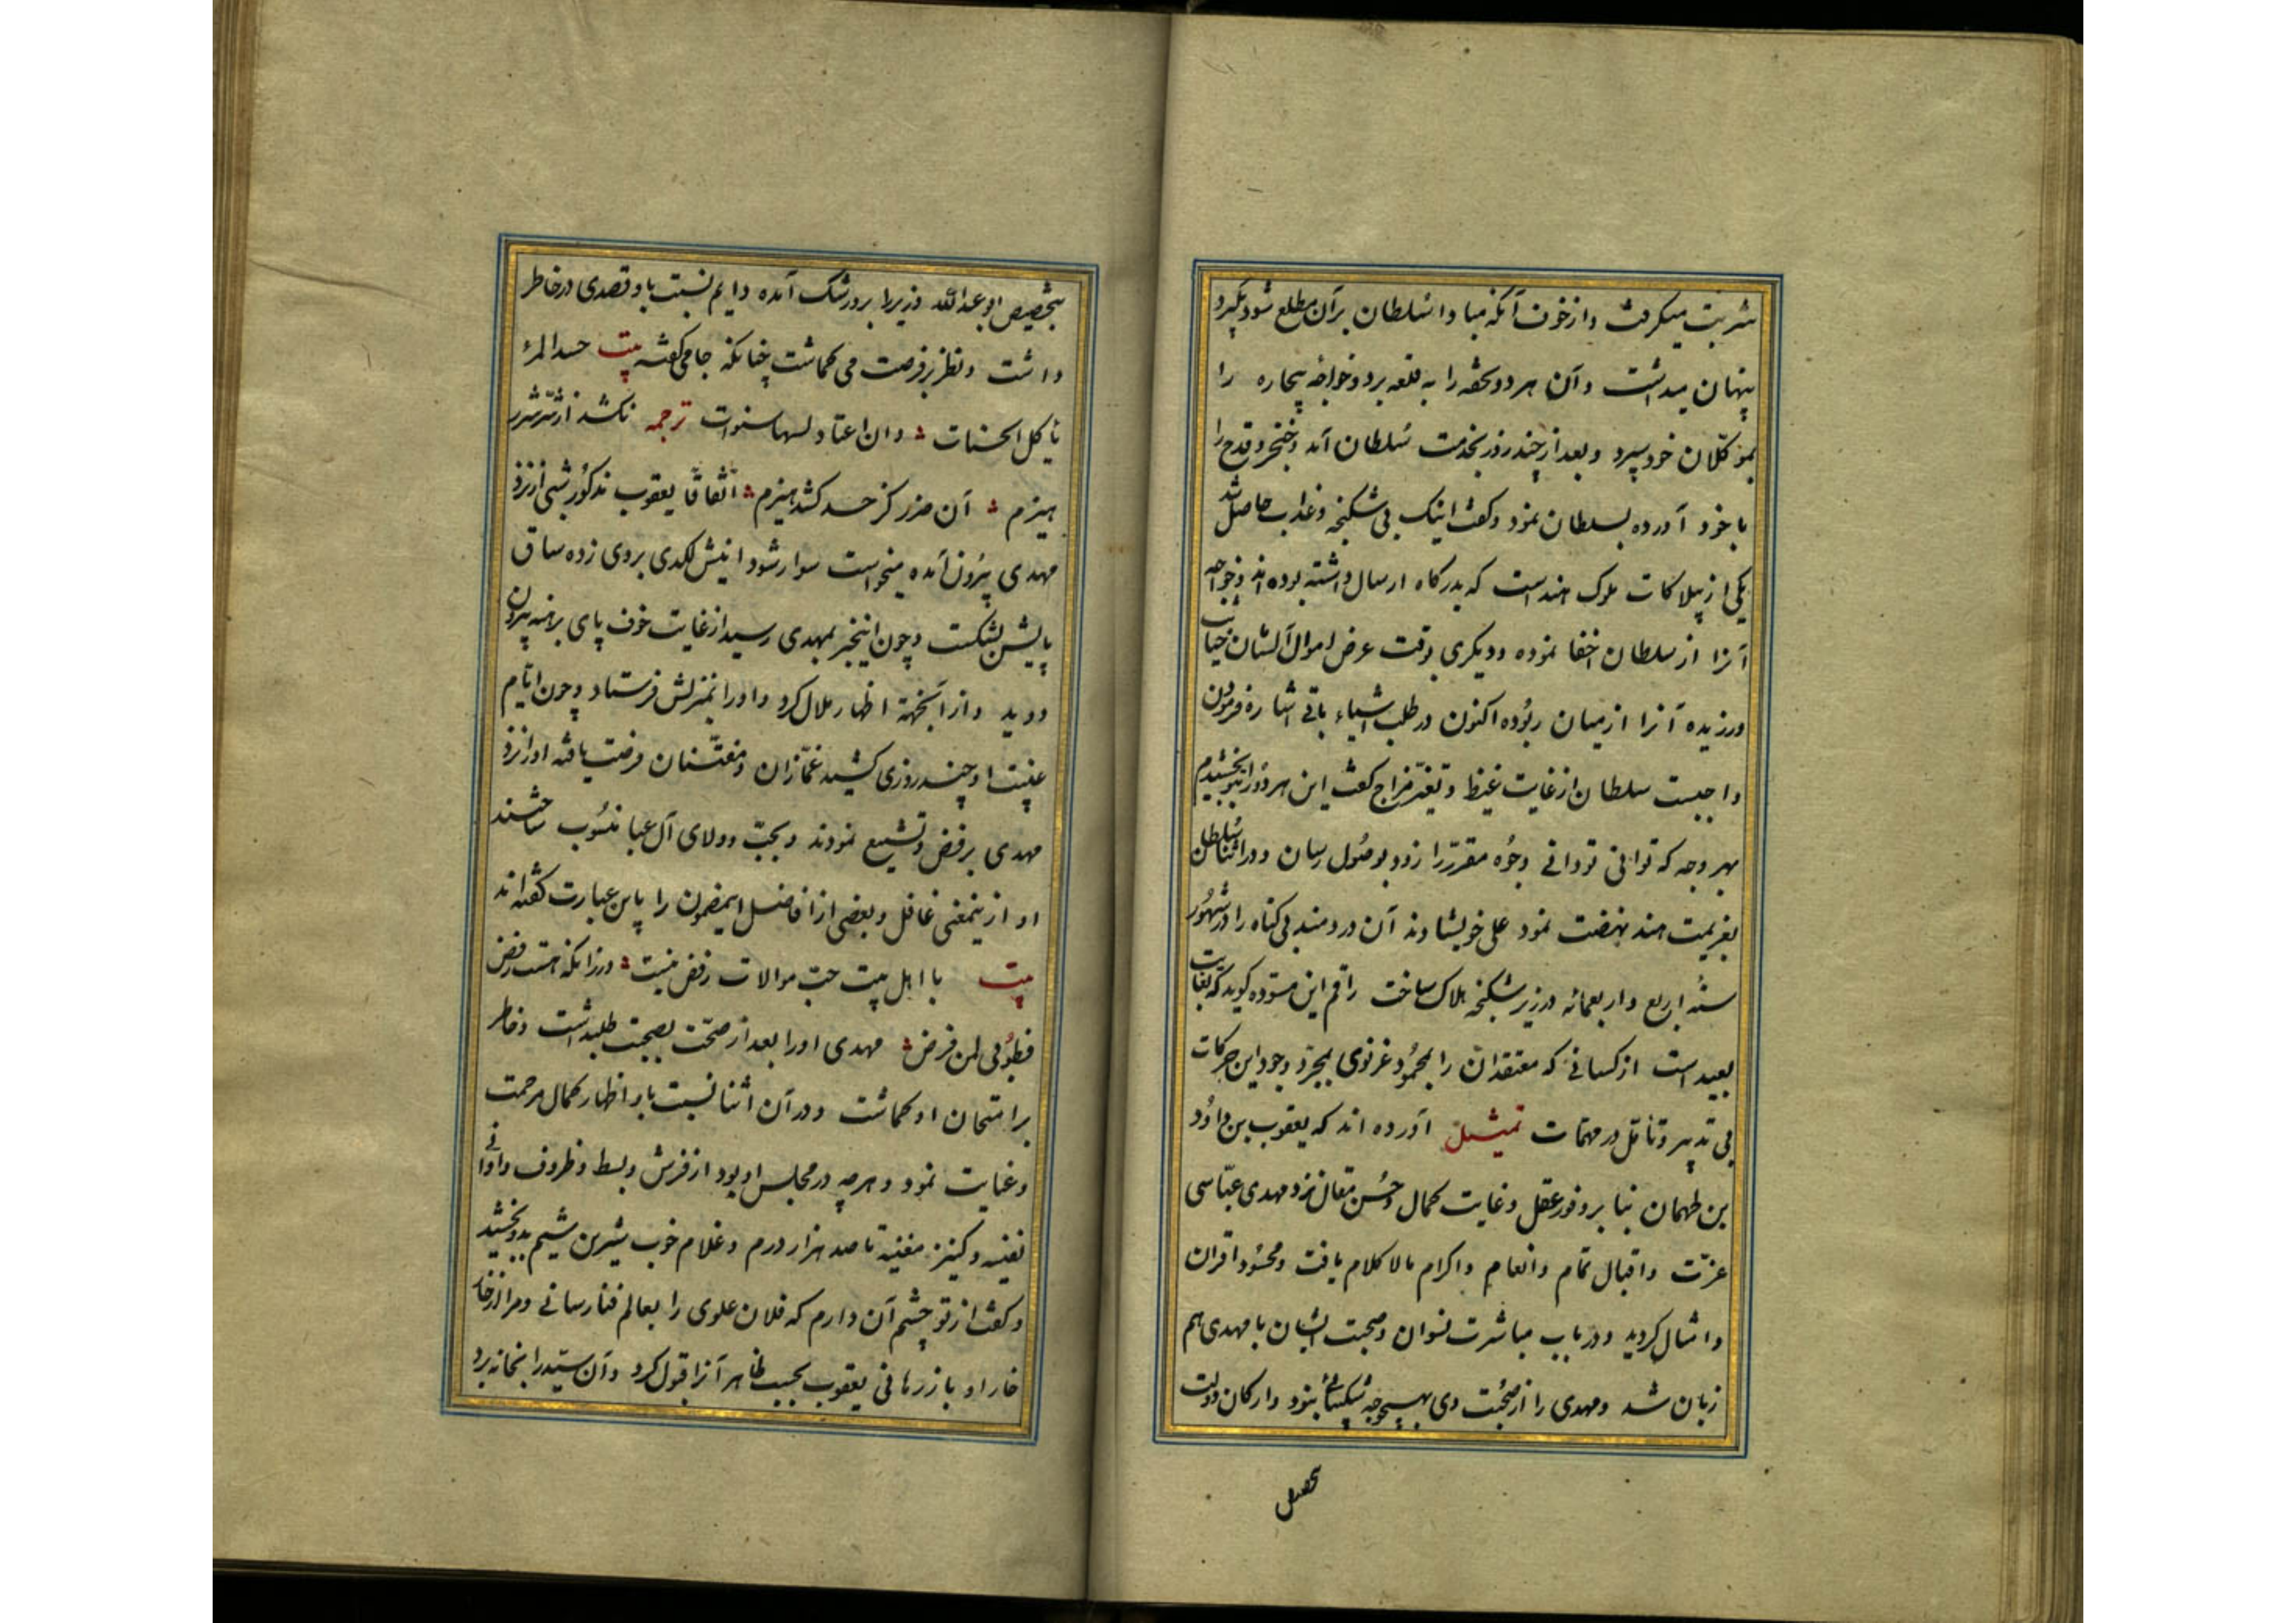 شربت میکرفت و از خوف آنکه مبادا سلطان بر آن مطلع شود و بگیرد
پنهان میداشت و آن هر دو تحفه را به قلعه برد و خواجهٔ بیچاره را
بموکلان خود سپرد و بعد از چند روز بخدمت سلطان آمد و خنجر و قدح را
با خود آورده بسلطان نمود و گفت اینک بی شکنجه و عذاب حاصل شد
یکی از پیلاکات ملوک هند است که بدرگاه ارسال داشته بوده اند و خواجه
آنرا از سلطان اخفا نموده و دیگری بوقت عرض اموال آلشان خیانت
ورزیده آنرا از میان ربوده اکنون در طلب اشیاء باقی اشاره فرمودن
واجبست سلطان از غایت غیظ و تغیّر مزاج گفت این هر دو را بتو بخشیدم
بهر وجه که توانی تو دانی وجوه مقرّر را زود بوصول رسان و در اثنا سلطان
بعزیمت هند نهضت نمود علی خویشاوند آن دردمند بی گناه را در شهور
سنهٔ اربع و اربعمائه در زیر شکنجه هلاک ساخت راقم این مسوّده گوید که بغایت
بعید است از کسانی که معتقدان را بمحمود غزنوی بمجرّد وجود این حرکات
بی تدبیر و تأمّل در مهمّات تمثیل آورده اند که یعقوب بن داوُد
بن طهمان بنا بر وفور عقل و غایت کمال و حُسن مقال نزد مهدی عبّاسی
عزّت و اقبال تمام و انعام و اکرام مالاکلام یافت و محسُود اقران
و امثال گردید و در باب مباشرت نسوان و صحبت ایشان با مهدی هم
زبان شد و مهدی را از صحبت وی بهیچوجه شکیبائی نبود و ارکان دولت
بتخصیص ابو عبد الله وزیر را برو رشک آمده دایم نسبت باو قصدی در خاطر
داشت و نظر بر فرصت می گماشت چنانکه جامی گفته بیت حسد المرء
یأکل الحسنات و ان اعتاد لسها سنوات ترجمه نکشد از شر شرر
هیزم آن ضرر کز حسد کشد هیزم اتّفاقاً یعقوب مذکور شبی از نزد
مهدی بیرون آمده میخواست سوار شود اسبش لگدی بر وی زده ساق
پایش بشکست و چون اینخبر بمهدی رسید از غایت خوف پای برهنه بیرون
دوید و از آنجهة اظهار ملال کرد و او را بمنزلش فرستاد و چون ایّام
غیبت او چند روزی کشید غمّازان و مفتّنان فرصت یافته او را نزد
مهدی برفض و تشیع نمودند و بحبّ و ولای آل عبا منسُوب ساختند
او از ینمعنی غافل و بعضی از افاضل اینمضمون را باین عبارت گفته اند
بیت با اهل بیت حبّ موالات رفض نیست ورزانکه هست رفض
فطوُبی لمن فرض مهدی او را بعد از صحّت بصحبت طلبداشت و خاطر
بر امتحان او گماشت و در آن اثنا نسبت باو اظهار کمال مرحمت
و عنایت نمود و هرچه در مجلس او بود از فرش و بسط و ظروف و اوانی
نفیسه و کنیز مغنیه تا صد هزار درم و غلام خوب شیرین شیم بدو بخشید
و گفت از تو چشم آن دارم که فلان علوی را بعالم فنا رسانی و مرا از خار
خار او باز رهانی یعقوب بحسب ظاهر آنرا قبول کرد و آن سیّد را بخانه برد